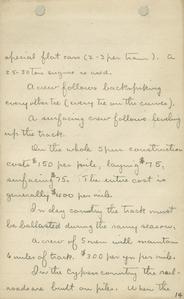 special flat cars (2-3 per train). A
25-30 ton engine is used.
A crew follows back-spiking
every other tie (every tie on the curves).
A surfacing crew follows leveling
up the track.
On the whole spur construction
costs $150 per mile, laying $75,
surfacing $75. The entire cost is
generally $400 per mile.
In clay country the track must
be ballasted during the rainy season.
A crew of 5 men will maintain
6 miles of track. $300 per yr per mile.
In the Cypress country the rail-
roads are built on piles. When the